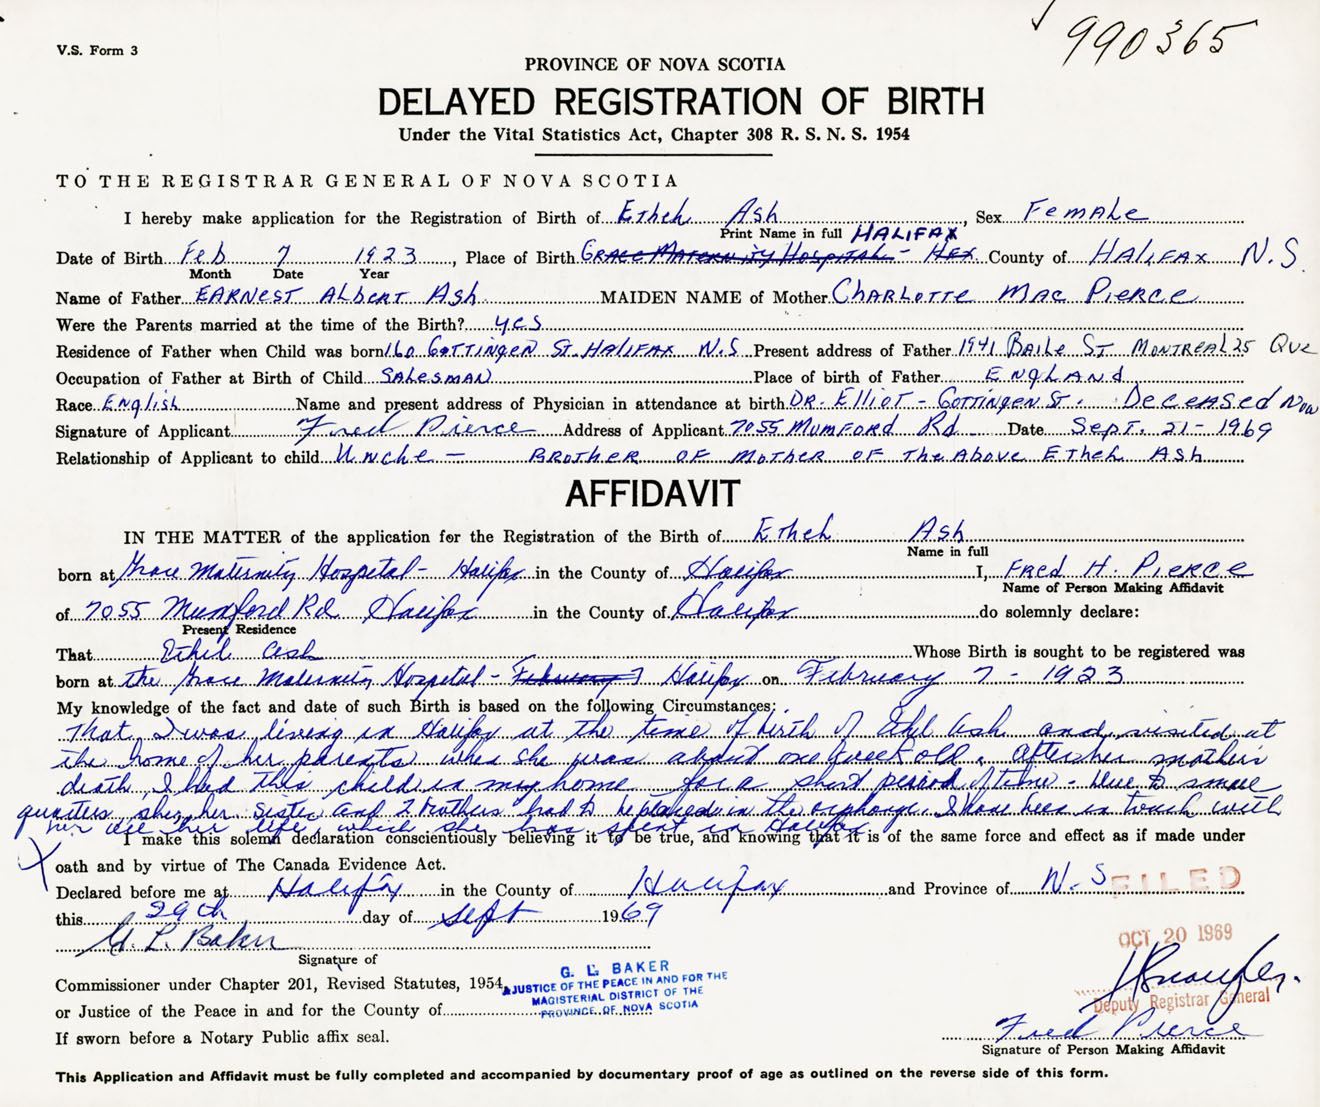 990365
V.S. Form 3
PROVINCE OF NOVA SCOTIA
DELAYED REGISTRATION OF BIRTH
Under the Vital Statistics Act, Chapter 308 R. S. N. S. 1954
TO THE REGISTRAR GENERAL OF NOVA SCOTIA
I hereby make application for the Registration of Birth of Ethel Ash, Sex Female
Print Name in full HALIFAX
Date of Birth Feb 7 1923, Place of Birth Grace Maternity Hospital - Hfx County of HALIFAX N.S.
Month Date Year
Name of Father EARNEST ALbERT Ash MAIDEN NAME of Mother CHARLOTTE MAC PIERCE
Were the Parents married at the time of the Birth? yes
Residence of Father when Child was born 160 GOTTINGEN ST. HALIFAX N.S. Present address of Father 1941 BAILE ST MONTREAL 25 QUE
Occupation of Father at Birth of Child SALESMAN Place of birth of Father ENGLANd
Race English Name and present address of Physician in attendance at birth DR. Elliot - GOTTINGEN ST. DECEASED NOW
Signature of Applicant Fred Pierce Address of Applicant 7055 MUMFORD Rd Date SEPT. 21 - 1969
Relationship of Applicant to child Uncle - BROTHER OF MOTHER OF The Above ETHEL ASH
AFFIDAVIT
IN THE MATTER of the application for the Registration of the Birth of Ethel Ash
Name in full
born at Grace Maternity Hospital - Halifax in the County of Halifax I, FRED H. PIERCE
Name of Person Making Affidavit
of 7055 Mumford Rd Halifax in the County of Halifax do solemnly declare:
Present Residence
That Ethel Ash Whose Birth is sought to be registered was
born at the Grace Maternity Hospital - February 7 Halifax on February 7 - 1923
My knowledge of the fact and date of such Birth is based on the following Circumstances:
That I was living in Halifax at the time of birth of Ethel Ash and visited at
the home of her parents when she was about one week old. After her mother's
death, I had this child in my home for a short period of time - due to small
quarters she, her sister and 2 brothers had to be placed in the orphanage. I have been in touch with
her all her life, which she has spent in Halifax
I make this solemn declaration conscientiously believing it to be true, and knowing that it is of the same force and effect as if made under
oath and by virtue of The Canada Evidence Act.
Declared before me at Halifax in the County of Halifax and Province of N.S.
FILED
this 29th day of Sept 1969
OCT 20 1969
G. L. Baker
Signature of
Commissioner under Chapter 201, Revised Statutes, 1954,
or Justice of the Peace in and for the County of
G. L. BAKER
A JUSTICE OF THE PEACE IN AND FOR THE
MAGISTERIAL DISTRICT OF THE
PROVINCE OF NOVA SCOTIA
Deputy Registrar General
If sworn before a Notary Public affix seal.
Fred Pierce
Signature of Person Making Affidavit
This Application and Affidavit must be fully completed and accompanied by documentary proof of age as outlined on the reverse side of this form.